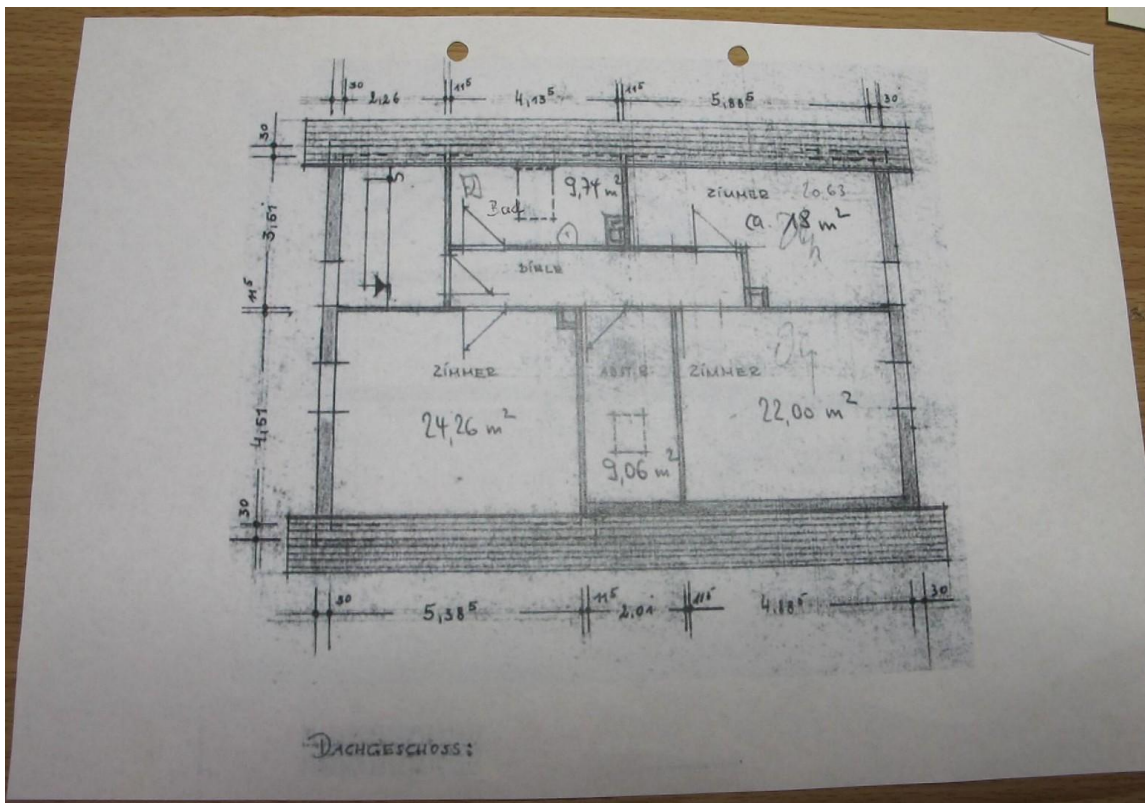 30 2,26 11⁵ 4,13⁵ 11⁵ 5,88⁵ 30
30
3,51
11⁵
4,51
30
9,74 m²
Bad
ZIMMER 20,63
ca. 18 m²
DIELE
ZIMMER
24,26 m²
ABST.R.
9,06 m²
ZIMMER
22,00 m²
30 5,38⁵ 11⁵ 2,01 11⁵ 4,88⁵ 30
DACHGESCHOSS: